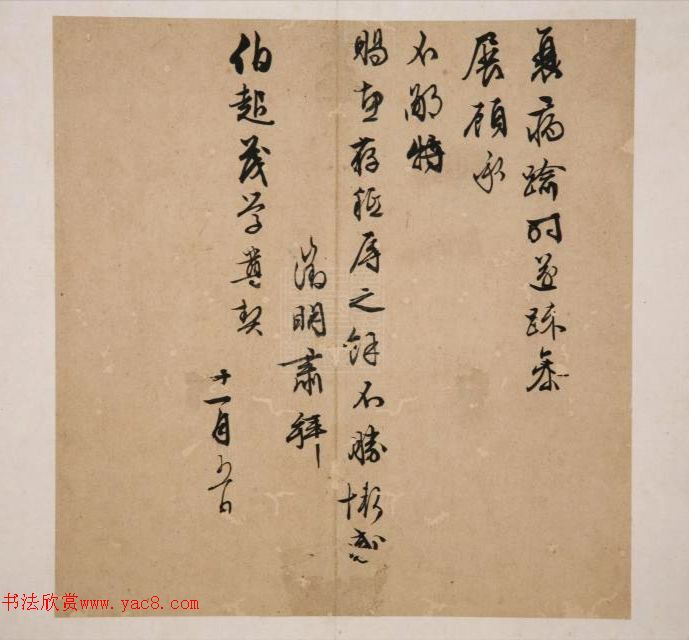 衰病踰时遂疎参
展顾承
不鄙特
赐盍存秪辱之馀不胜惭感
徵明肃拜
伯起茂学尊契
十一月五日
书法欣赏www.yac8.com